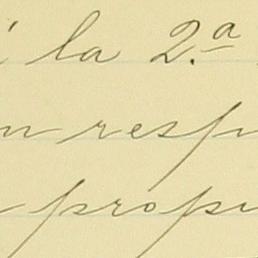 la 2.ª
n resp
propi